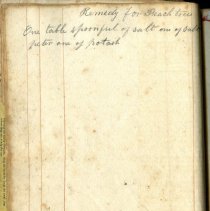 Remedy for Peach trees
One table spoonful of salt one of salt
peter one of potash